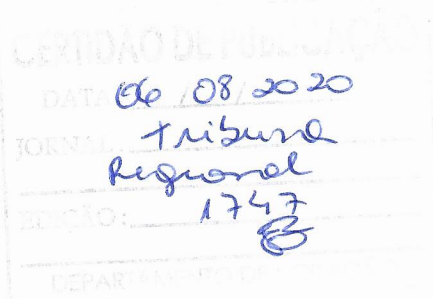 CERTIDÃO DE PUBLICAÇÃO
DATA 06 / 08 / 2020
JORNAL: Tribuna
Regional
EDIÇÃO: 1747
DEPARTAMENTO DE